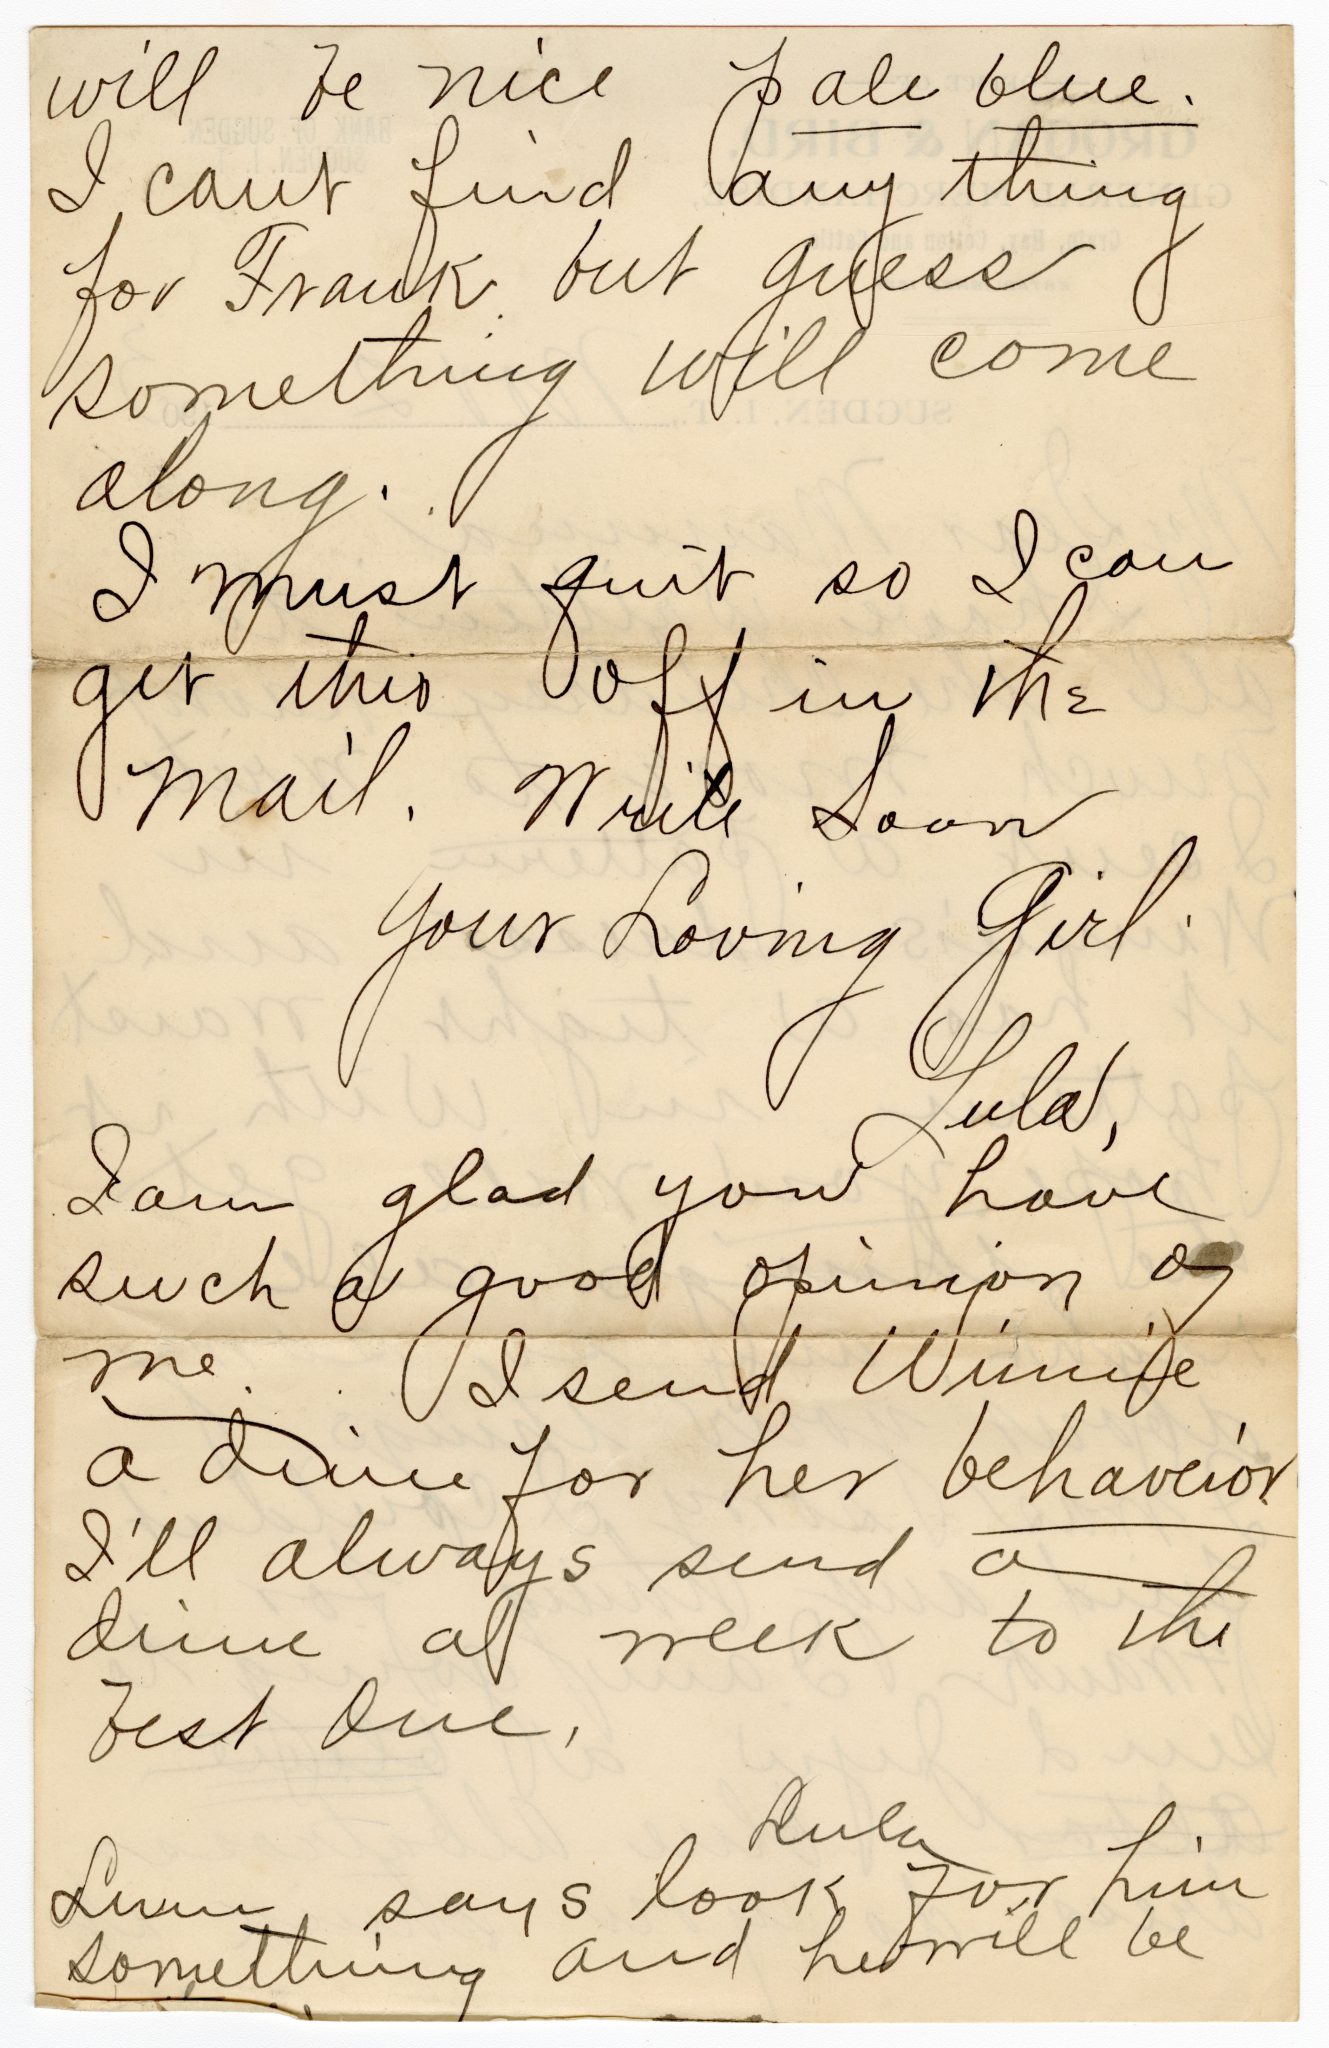 will be nice pale blue.
I cant find any thing
for Frank but guess
something will come
along.
I must quit so I can
get this off in the
mail. Write Soon
Your Loving Girl.
Lula,
I am glad you have
such a good opinion of
me. I send Winnie
a dime for her behaveior
I'll always send a
dime a week to the
best one.
Lula
says look for him
something and he will be